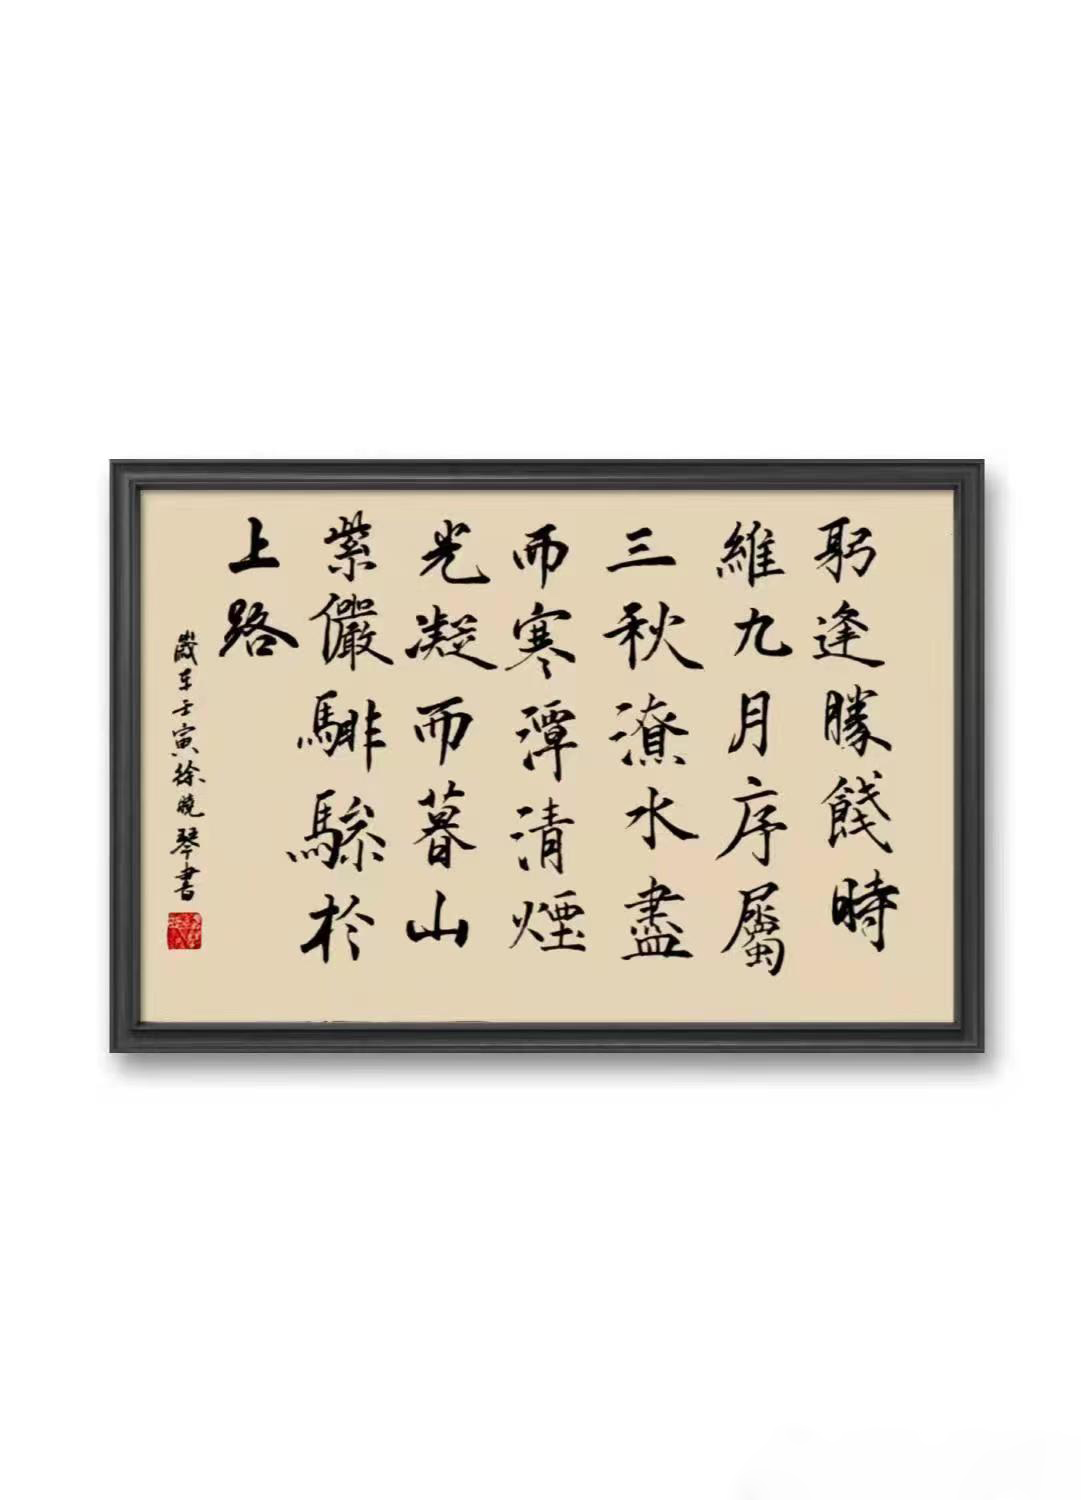 躬逢勝餞時
維九月序屬
三秋潦水盡
而寒潭清煙
光凝而暮山
紫儼騑驂於
上路
歲在壬寅徐曉琴書